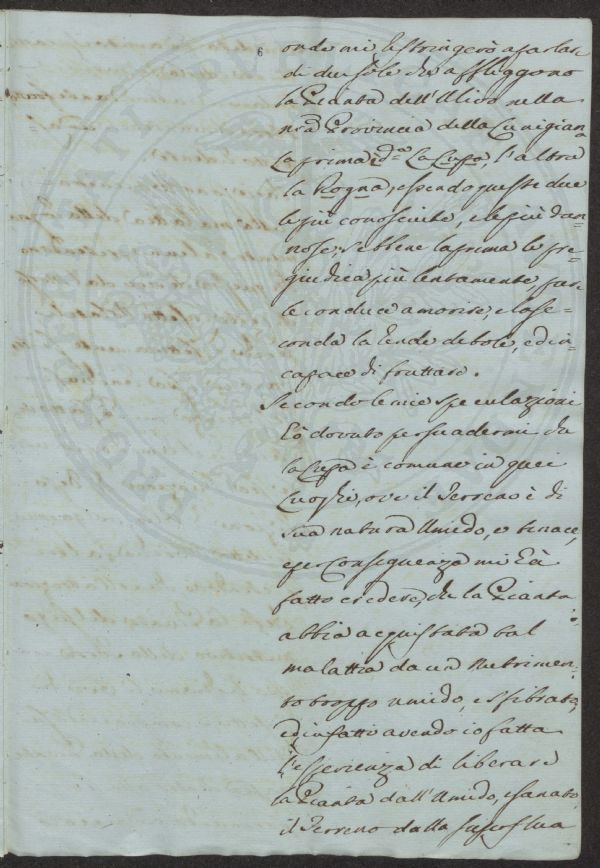 6
onde mi restringerò a parlar
di due sole che affliggono
la Pianta dell'Ulivo nella
nrã Provincia della Lunigian̅a
La prima ed.ª La Lupa, l'altra
la Rogna, essendo queste due
le più conosciute, e le più dan=
nose; sebbene la prima le pre=
giudica più lentamente, pur
le conduce a morire; e la se=
conda la rende debole, ed in=
capace di fruttare.
Secondo le mie speculazioni
hò dovuto persuadermi che
la Lupa è comune in quei
Luoghi, ove il Terreno è di
sua natura Umido, e tenace,
e per Conseguenza mi hà
fatto credere, che la Pianta
abbia acquistata tal
malattia da un Nutrimen=
to troppo umido, e sfibrato,
ed in fatti avendo io fatta
l'esperienza di liberare
la Pianta dall'Umido, e sanato
il Terreno dalla superflua